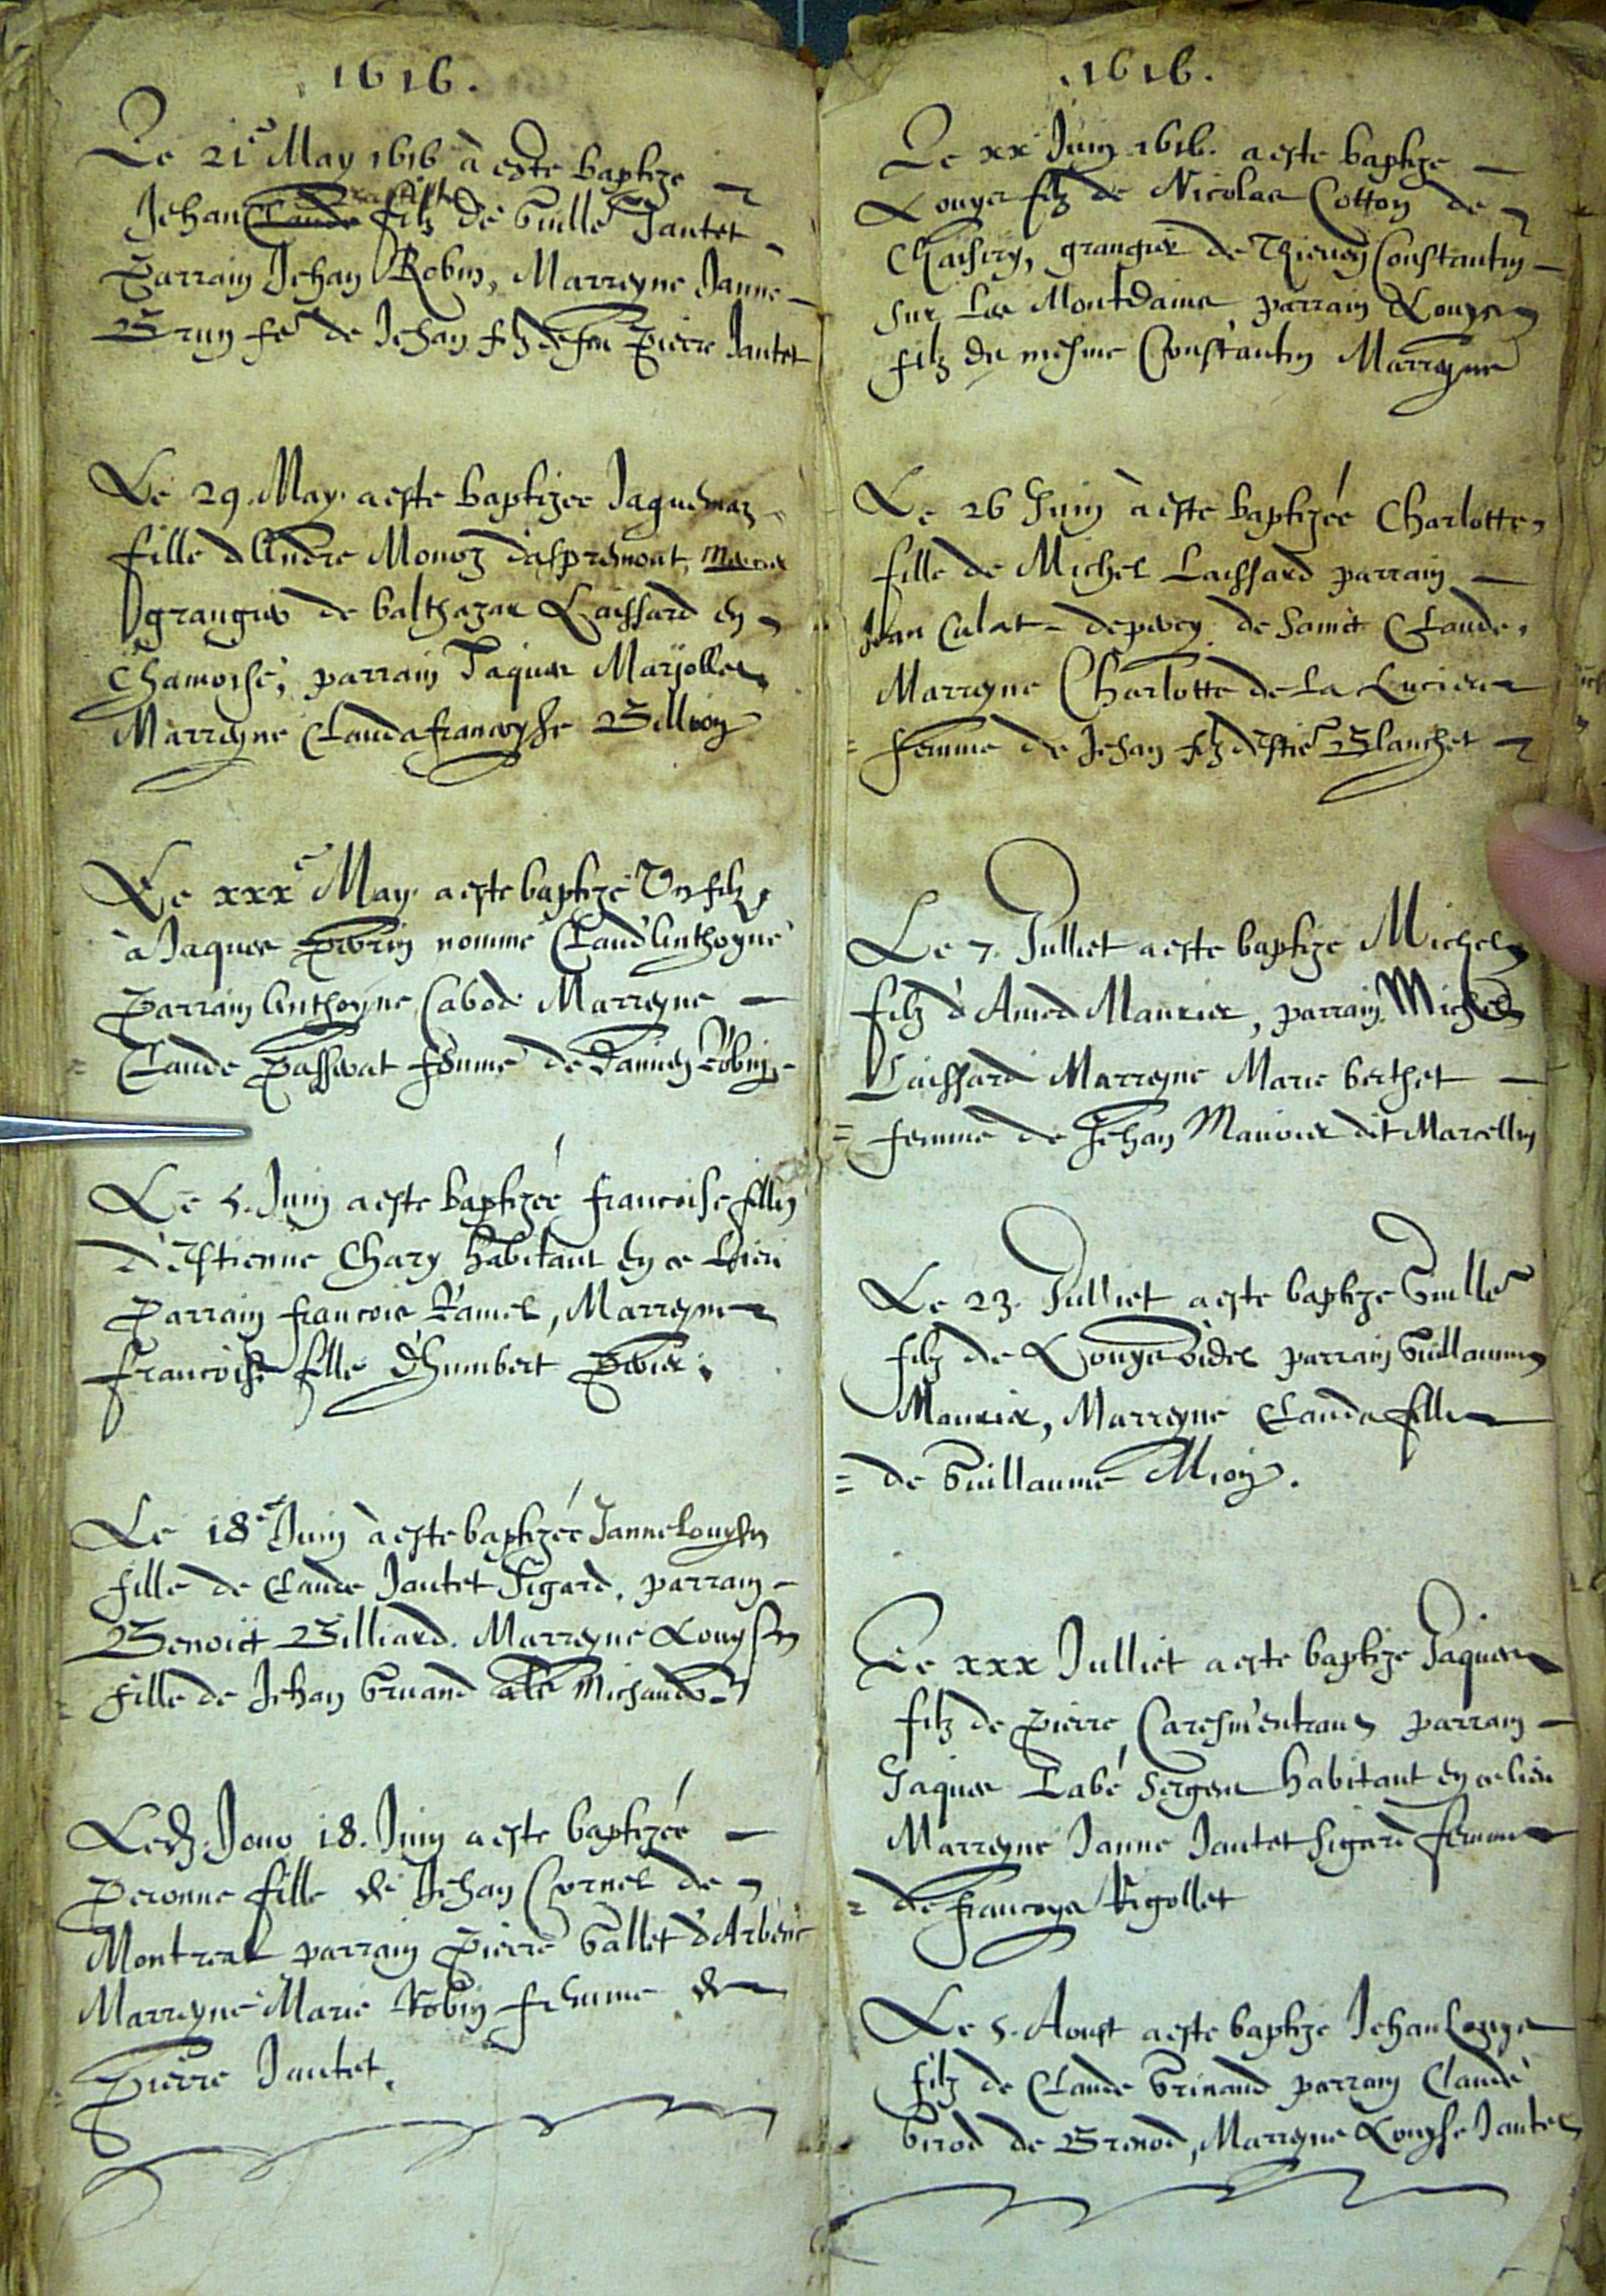 1616.
Le 21e May 1616 à este baptize
Jehan Claude baptiste filz de Guille Jantet
Parrain Jehan Robin, Marreyne Janne
Brun fe de Jehan filz de feu Pierre Jantet
Le 29. May. a este baptizee Jaquemaz
fille d'Andre Monoz d'aspremont,
grangier de balthazar Laissard en
Chamoise, parrain Jaques Marjollet
Marreyne Clauda francoyse Billion
Le xxxe May. a este baptizé Un filz
à Jaques Perrin nommé Claud'Anthoyne
Parrain Anthoyne Cabod Marreyne
Claude Passerat femme de Robin
Le 5. Juin a este baptizée francoise fille
d'Estienne Chary habitant en ce Lieu
Parrain francois Ramel, Marreyne
francoise fille d'humbert
Le 18e Juin à este baptizée Janne Louyse
fille de Claude Jantet Sigard. parrain
Benoict Billiard. Marreyne Louyse
fille de Jehan Gruand
Ledz. Jour 18. Juin a este baptizée
Peronne fille de Jehan Cornel de
Montreal parrain Pierre Gallet d'Arbent
Marreyne Marie Robin femme de
Pierre Jantet.
1616.
Le xx Juin 1616. a este baptize
Louys filz de Nicolas Cotton de
Chaisiry, grangier de Constantin
sur Les Montdains parrain Louys
filz du mesme Constantin Marreyne
Le 26 Juin à este baptizée Charlotte
fille de Michel Laissard parrain
Jean Culat de Sainct Claude,
Marreyne Charlotte de La
femme de Jehan filz d'Estie Blanchet
Le 7. Julliet a este baptizé Michel
filz d'Amed Maurier, parrain Michel
Laissard Marreyne Marie berthet
femme de Jehan Maurier dit Marcellin
Le 23. Julliet a este baptize Guille
filz de Louys videl parrain Guillaume
Maurier, Marreyne Clauda fille
de Guillaume Mion.
Le xxx Julliet a este baptizé Jaques
filz de Pierre Caresm'entrant parrain
Jaques Labé sergent habitant en ce lieu
Marreyne Janne Jantet Sigard femme
de francoys Rigollet
Le 5. Aoust a este baptize Jehan Louys
filz de Claude Grinand parrain Claude
Girod de Brenod, Marreyne Louyse Jantet